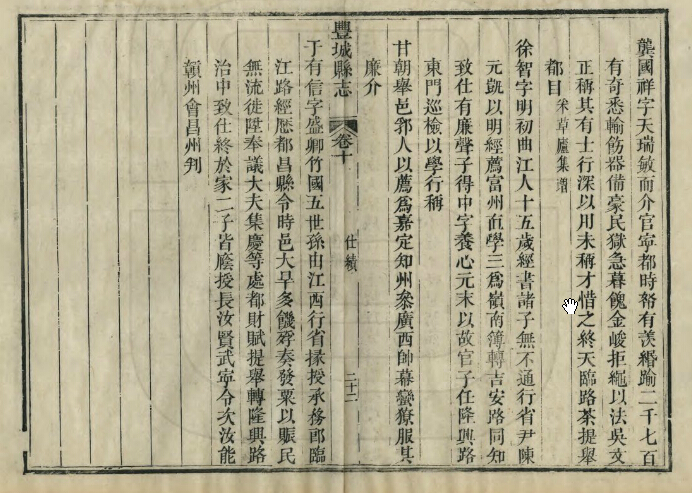 龔國祥字天瑞敏而介官寧都時帑有羨緡踰二千七百
有奇悉輸笏器備豪民獄急暮餽金峻拒繩以法吳文
正稱其有士行深以用未稱才惜之終天臨路茶提舉
都目 釆草廬集增
徐智字明初曲江人十五歲經書諸子無不通行省尹陳
元凱以明經薦富州直學三為嶺南簿轉吉安路同知
致仕有廉聲子得中字養心元末以故官子任隆興路
東門巡檢以學行稱
甘朝舉邑郭人以薦爲嘉定知州叅廣西帥幕蠻獠服其
廉介
豐城縣志
卷十
仕績
二十二
于有信字盛卿竹國五世孫由江西行省掾授承務郎臨
江路經歷都昌縣令時邑大旱多饑殍奏發粟以賑民
無流徙陞奉議大夫集慶等處都財賦提舉轉隆興路
治中致仕終於家二子皆廕授長汝賢武寧令次汝能
贛州會昌州判